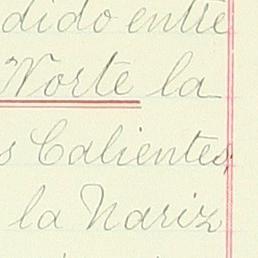 dido entre
Norte la
s Calientes,
la Nariz